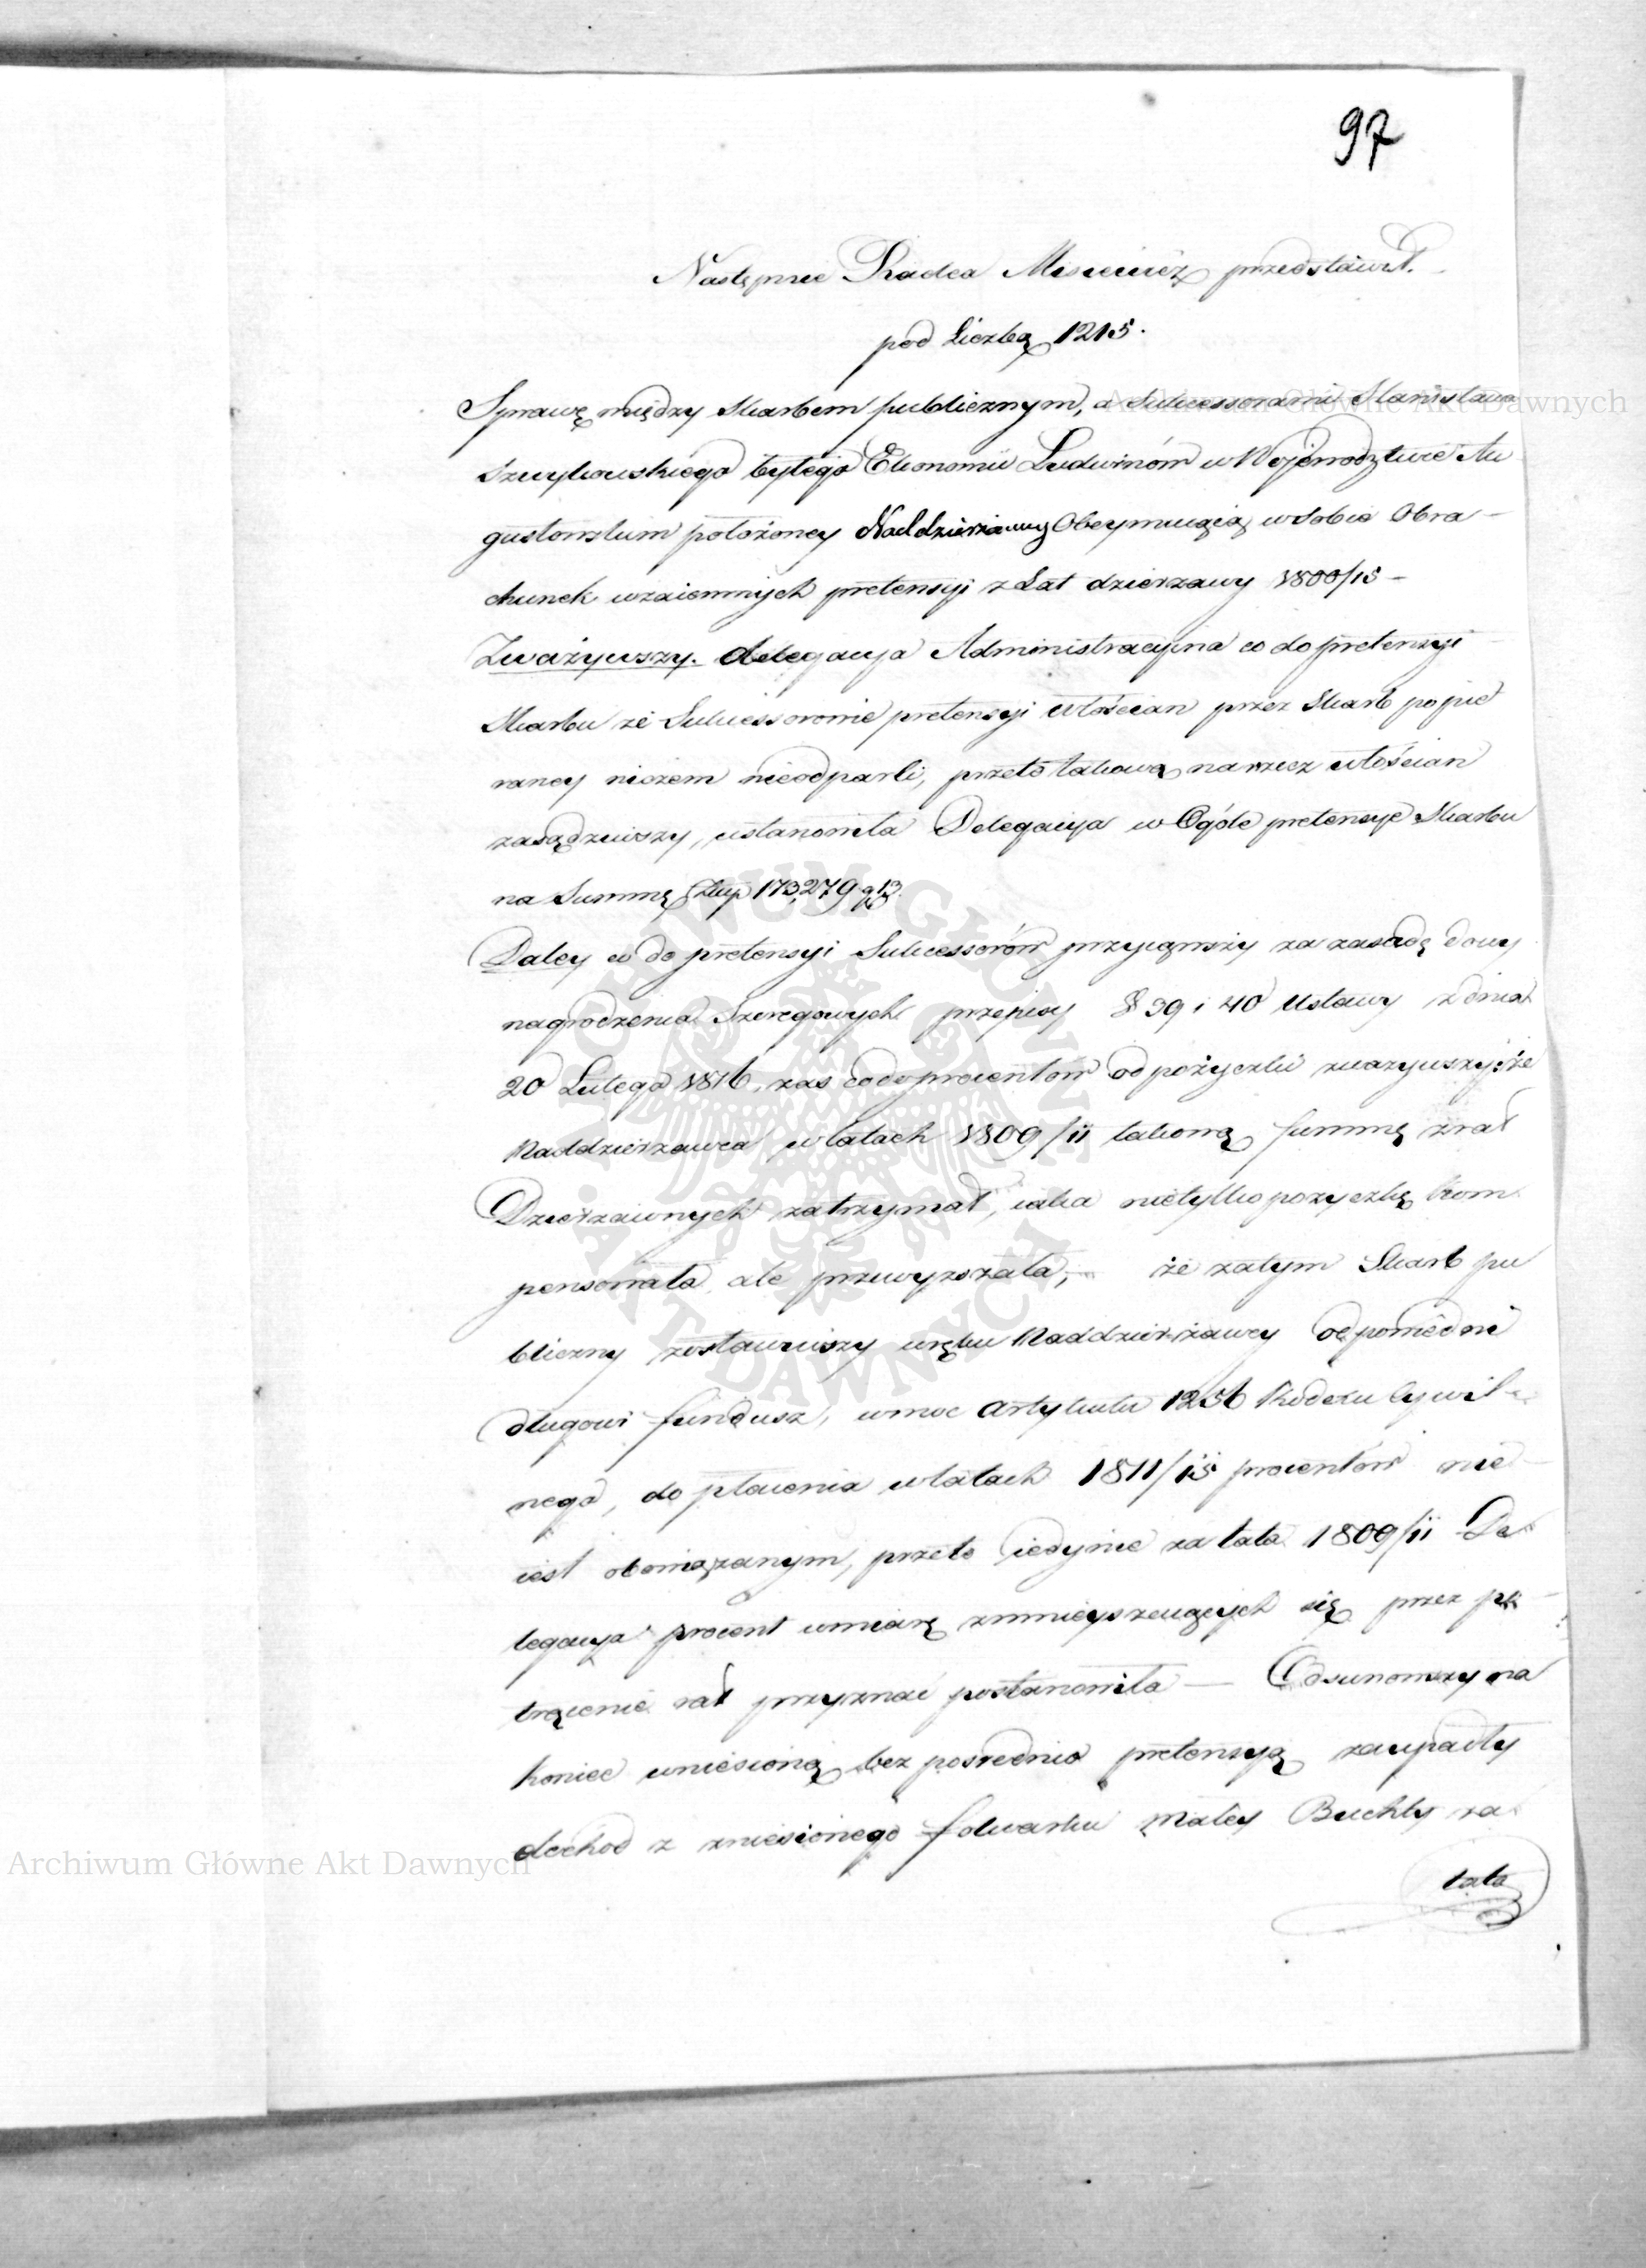 97
Następnie Radca przedstawił.
pod Liczbą 1215.
Sprawę między Skarbem publicznym, a Sukcessorami Stanisława
Szwykowskiego byłego Ekonomii Ludwinów w Wojewodztwie Au
gustowskim położoney Naddzierżawcy Obeymuiącą w sobie Obra-
chunek wzaiemnych pretensyi z Lat dzierżawy
Zważywszy. delegacya Administracyjna co do pretensyi
Skarbu że Sukcessorowie pretensyi włościan przez Skarb popie
raney niczem nieodparli, przeto takową na rzecz włościan
zasądziwszy, ustanowiła Delegacya w Ogóle pretensye Skarbu
na Summę Złłp 173,279 g 13.
Daley co do pretensyi Sukcessorów przyiąwszy za zasadę
nagrodzenia Szeregowych przepisy § 39 i 40 Ustawy z dnia
20 Lutego 1816, zas co do procentów od pożyczki zważywszy: że
Naddzierżawca w latach 1809/11 takową summę z rat
Dzierżawnych zatrzymał, iaka nietylko pożyczkę kom
pensowała ale przewyższała, że zatym Skarb pu
bliczny zostawiwszy w ręku Naddzierżawcy odpowiedni
długowi fundusz, w moc Artykułu 1256 Kodexu Cywil
nego, do płacenia w latach 1811/15 procentów nie
iest obowiązanym, przeto iedynie za lata 1809/11 De
legacya procent w miarę zmnieyszaiących się przez po
trącenie rat przyznać postanowiła — Odsunowszy na
koniec wniesioną bezpośrednio pretensyą za upadły
dochod z zniesionego folwarku Małey Buchty za
lata